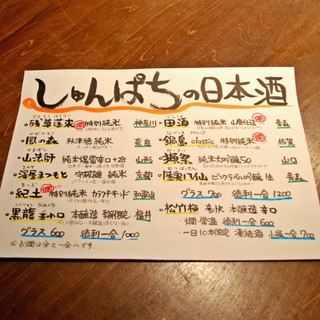 しゅんぱちの日本酒
・残草蓬莱 特別純米 神奈川
・風の森 秋津穂 純米 奈良
・山法師 純米爆雷辛口+28 山形
・澤屋まつもと 守破離 純米 京都
・紀土 特別純米 カラクチキッド 和歌山
・黒龍 本醸造 福井
グラス 600 徳利一合 1000
※お燗は全て一合〜です。
・田酒 特別純米 山廃仕込 青森
・鍋島 classic 特別純米 佐賀
・獺祭 純米大吟醸50 山口
・陸奥八仙 ピンクラベル吟醸 生 青森
グラス 700 徳利一合 1200
・松竹梅 豪快 本醸造 辛口
・燗・常温 徳利一合 700
・一日10本限定 凍結酒 小瓶一合 700